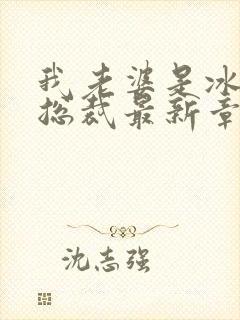 我老婆是冰
总裁最新章
沈志强